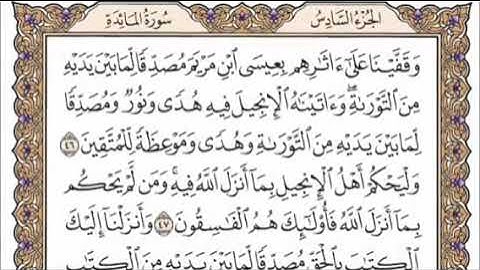 الجزء السادس
سورة المائدة
وَقَفَّيْنَا عَلَىٰٓ ءَاثَٰرِهِم بِعِيسَى ٱبْنِ مَرْيَمَ مُصَدِّقًا لِّمَا بَيْنَ يَدَيْهِ
مِنَ ٱلتَّوْرَىٰةِ ۖ وَءَاتَيْنَٰهُ ٱلْإِنجِيلَ فِيهِ هُدًى وَنُورٌ وَمُصَدِّقًا
لِّمَا بَيْنَ يَدَيْهِ مِنَ ٱلتَّوْرَىٰةِ وَهُدًى وَمَوْعِظَةً لِّلْمُتَّقِينَ ٤٦
وَلْيَحْكُمْ أَهْلُ ٱلْإِنجِيلِ بِمَآ أَنزَلَ ٱللَّهُ فِيهِ ۚ وَمَن لَّمْ يَحْكُم
بِمَآ أَنزَلَ ٱللَّهُ فَأُو۟لَٰٓئِكَ هُمُ ٱلْفَٰسِقُونَ ٤٧ وَأَنزَلْنَآ إِلَيْكَ
ٱلْكِتَٰبَ بِٱلْحَقِّ مُصَدِّقًا لِّمَا بَيْنَ يَدَيْهِ مِنَ ٱلْكِتَٰبِ